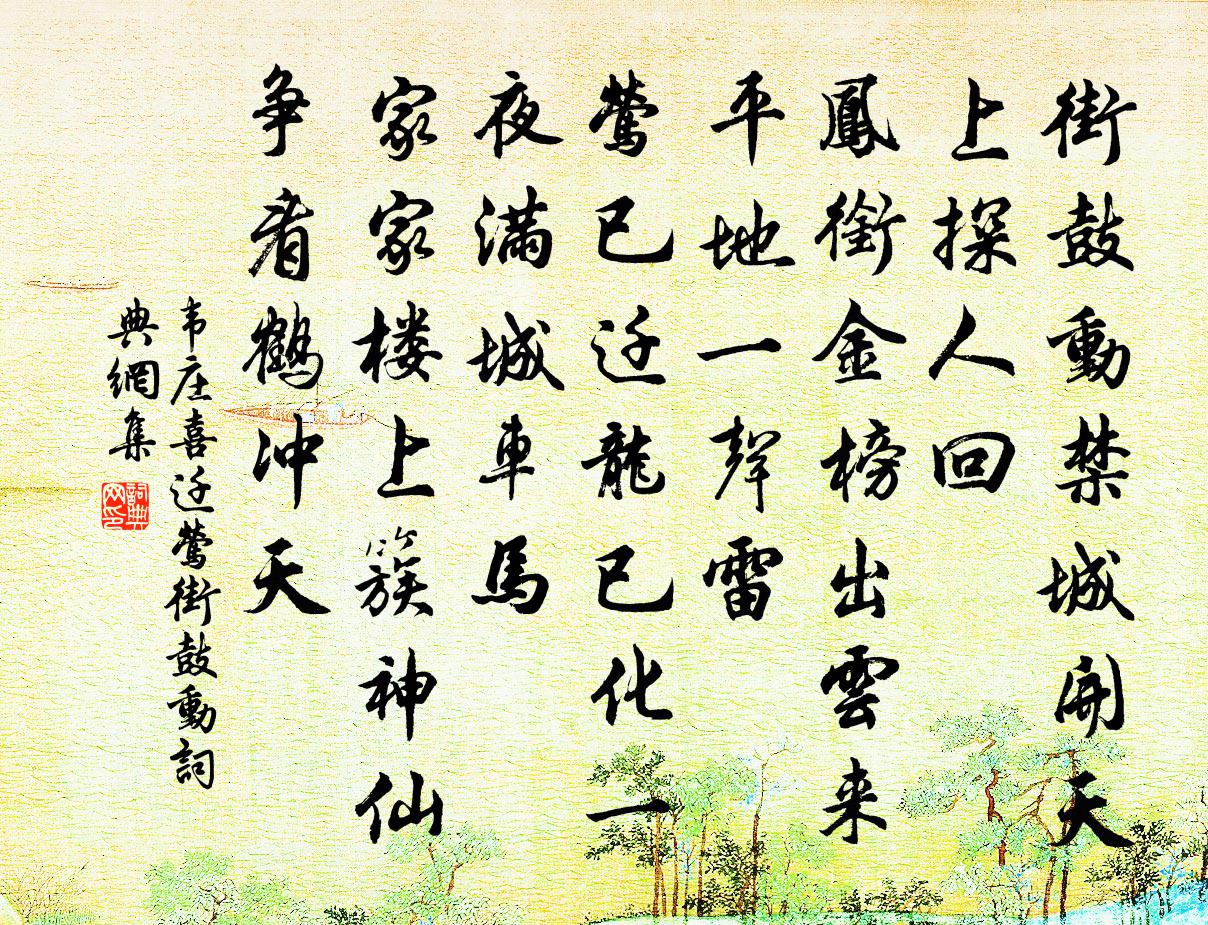 街鼓動禁城開天
上探人回
鳳銜金榜出雲来
平地一聲雷
鶯已迁龍已化一
夜满城車馬
家家楼上簇神仙
争看鶴冲天
韦庄喜迁鶯街鼓動詞
典網集
詞典网印